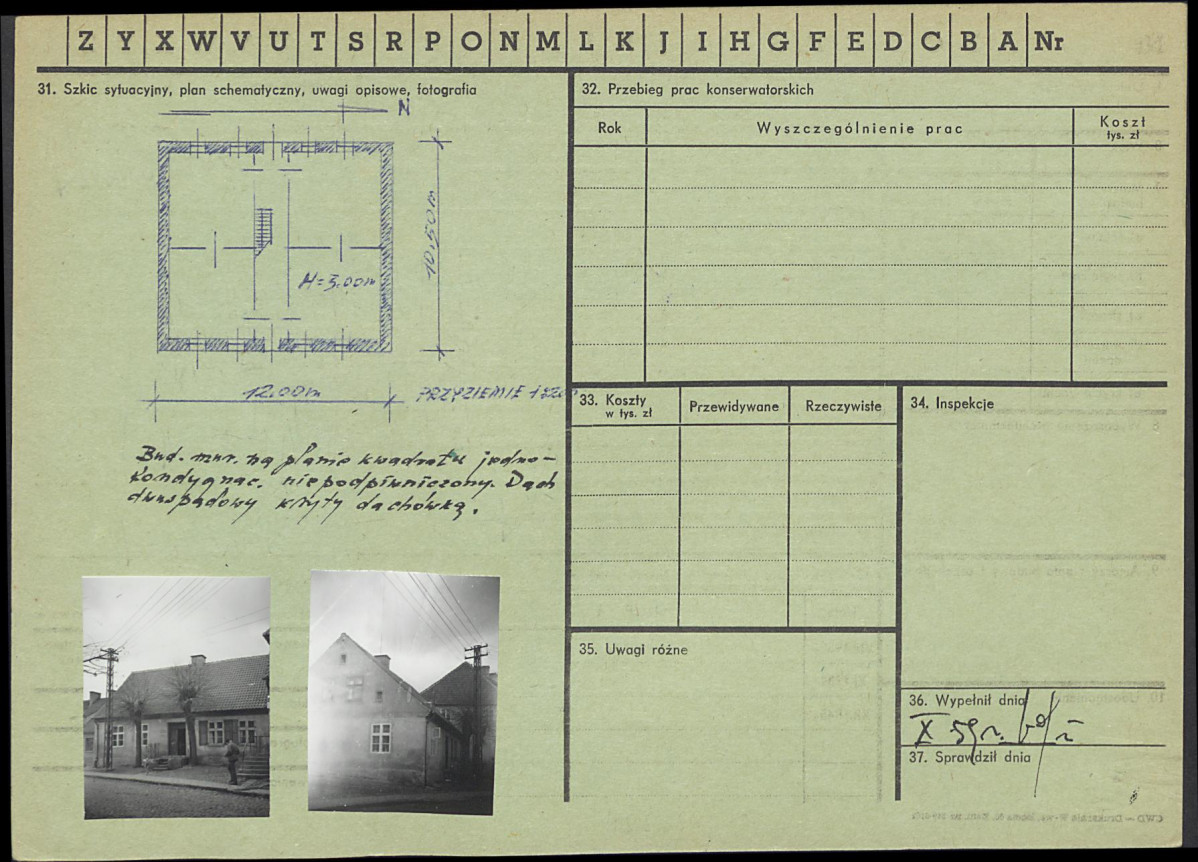 Z Y X W V U T S R P O N M L K J I H G F E D C B A Nr
31. Szkic sytuacyjny, plan schematyczny, uwagi opisowe, fotografia
N
H=3.00m
10.50m
12.00m
PRZYZIEMIE
Bud. mur. na planie kwadratu jedno-
kondygnac. niepodpiwniczony. Dach
dwuspadowy kryty dachówką.
32. Przebieg prac konserwatorskich
Rok
Wyszczególnienie prac
Koszt
tys. zł
33. Koszty
w tys. zł
Przewidywane
Rzeczywiste
34. Inspekcje
35. Uwagi różne
36. Wypełnił dnia
X 59 r.
37. Sprawdził dnia